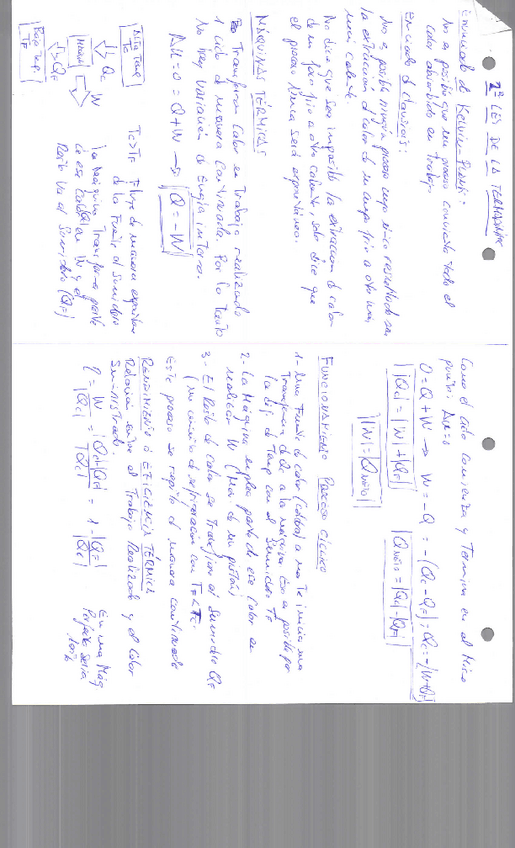 2ª LEY DE LA TERMODINÁMICA
Enunciado de Kelvin-Planck:
No es posible que un proceso convierta todo el
calor absorbido en trabajo
Enunciado de Clausius:
No es posible ningún proceso cuyo único resultado sea
la extracción de calor de un cuerpo frío a otro
más caliente
No dice que sea imposible la extracción de calor
de un foco frío a otro caliente, solo dice que
el proceso nunca será espontáneo.
MÁQUINAS TÉRMICAS
Transforman Calor en trabajo realizando
1 ciclo de manera continuada. Por lo tanto
No hay variación de Energía interna.
ΔU = 0 = Q + W → Q = -W
Alta Temp
Tc
Qc
W
QF
Baja Temp.
TF
Tc > TF Fluye de manera espontánea
de la Fuente al sumidero
La máquina transforma parte
de ese calor en W y el
resto va al sumidero (QF)
Como el ciclo comienza y Termina en el mismo
punto, ΔU=0
0 = Q + W → W = -Q = -(Qc - QF)
|Qc| = |W| + |QF|
|Qneto = |Qc| - |QF|
|W| = |Qneto|
Funcionamiento Proceso Cíclico
1- Una Fuente de calor (caldera) a una Tc inicia una
Transferencia de Qc a la máquina. Esto es posible por
la dif de Temp con el Sumidero TF
2- La Máquina emplea parte de ese calor en
realizar W (Mov de un pistón)
3- El Resto de calor se transfiere al Sumidero QF
(un circuito de refrigeración con TF < Tc.
Este proceso se repite de manera continuada
RENDIMIENTO ó EFICIENCIA TÉRMICA
Relación entre el Trabajo Realizado y el Calor
Suministrado.
η = W / |Qc| = |Qc|-|QF| / |Qc| = 1 - |QF| / |Qc|
En una Máq
Perfecta sería
100%